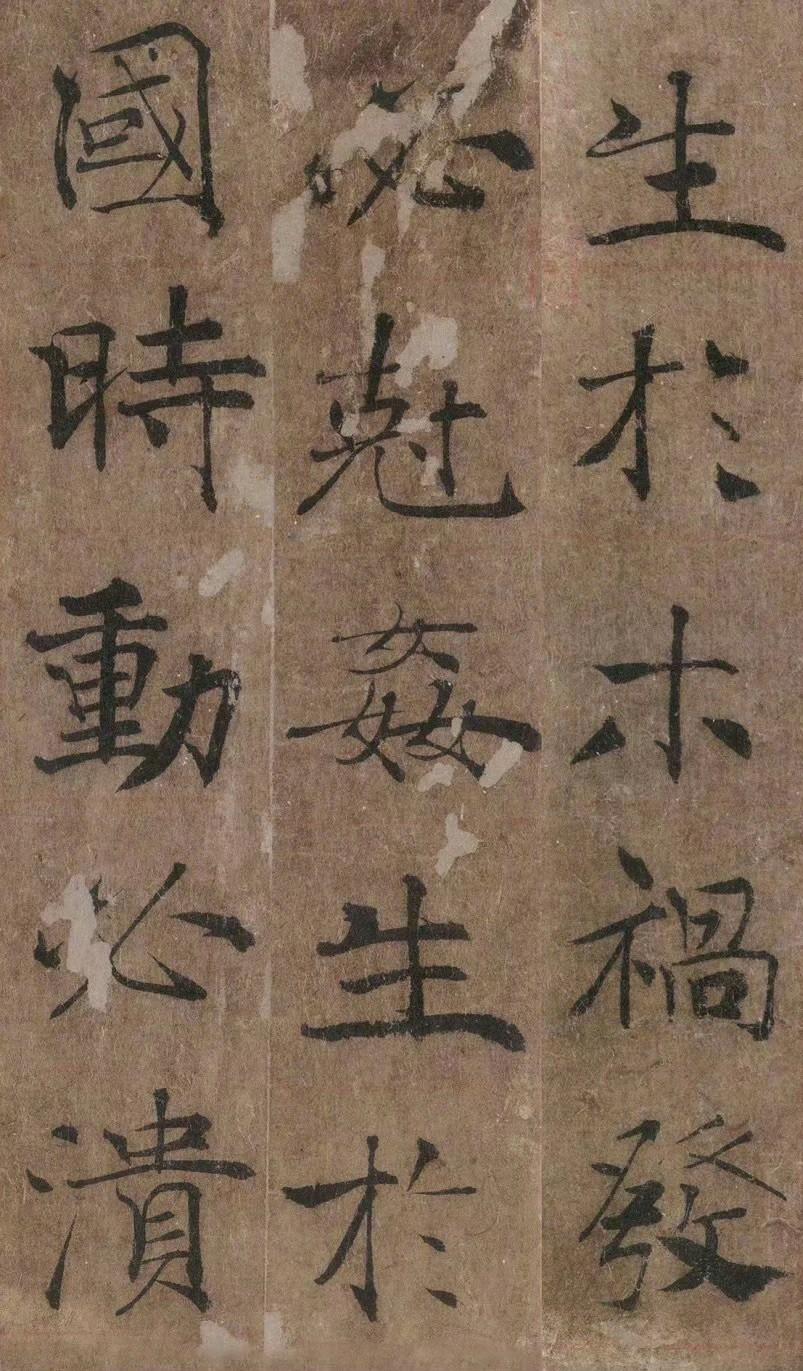 生於木禍發
必尅姦生於
國時動必潰